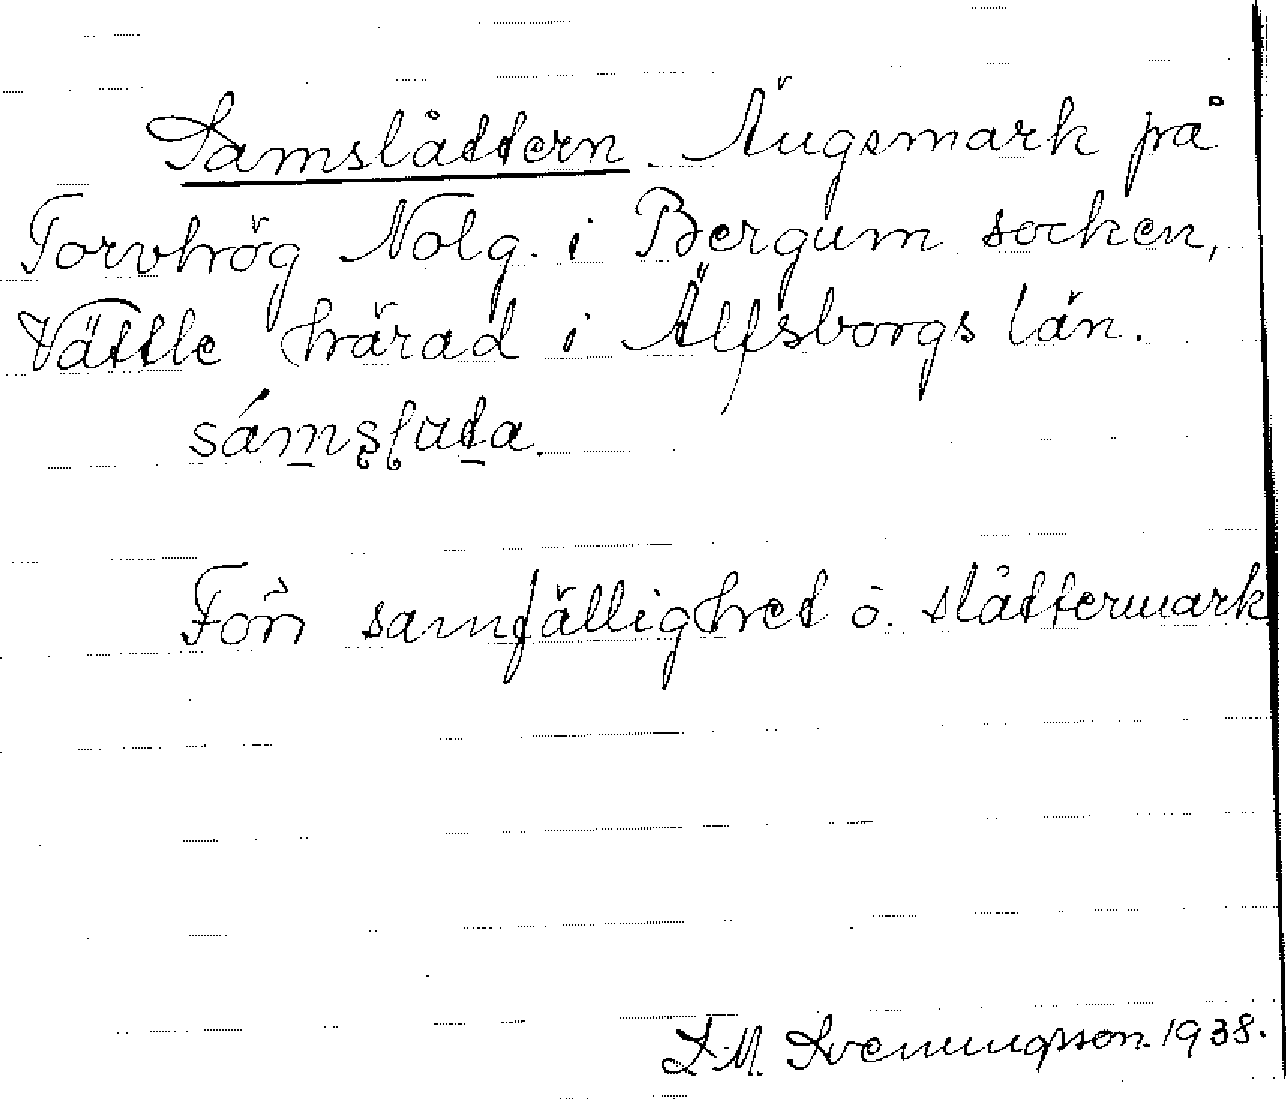 Samslåttern. Ängsmark på
Torvhög Nolg. i Bergum socken,
Vättle härad i Älfsborgs län.
Förr samfällighet o. slåttermark
S.M. Svenningsson. 1938.